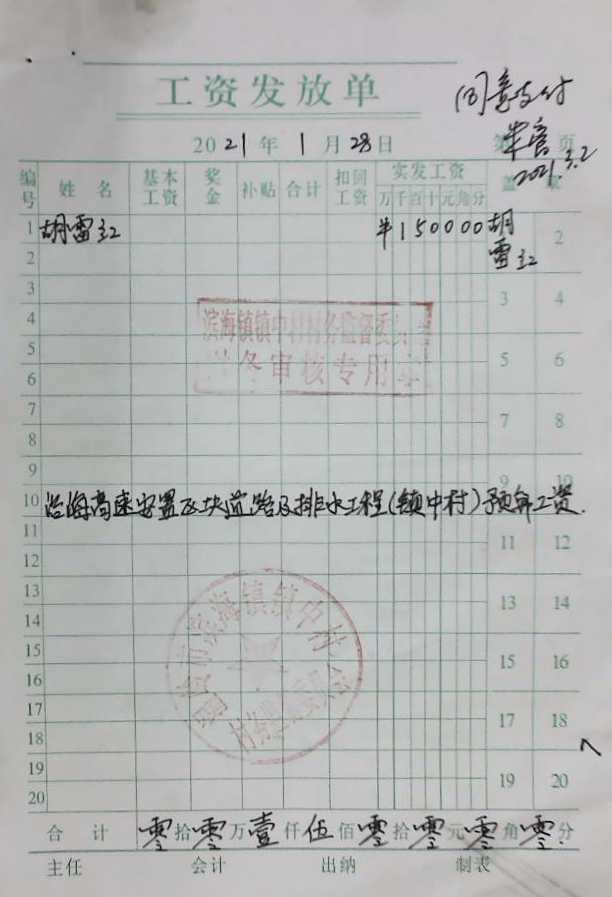 工资发放单
同意支付
2021年1月28日
第 页
2021.3.2
编号 姓名 基本工资 奖金 补贴 合计 扣回工资 实发工资 盖章
万千百十元角分
1 胡雷红 ¥150000 胡雷红
2 2
3 3 4
4
滨海镇镇中村村务监督委员会
财务审核专用章
5 5 6
6
7 7 8
8
9 9 10
10 沿海高速安置区块道路及排水工程(镇中村)预算工资.
11 11 12
12
13 13 14
14
滨海镇镇中村
村务监督委员会
15 15 16
16
17 17 18
18
19 19 20
20
合计 零拾零万壹仟伍佰零拾零元零角零分
主任 会计 出纳 制表